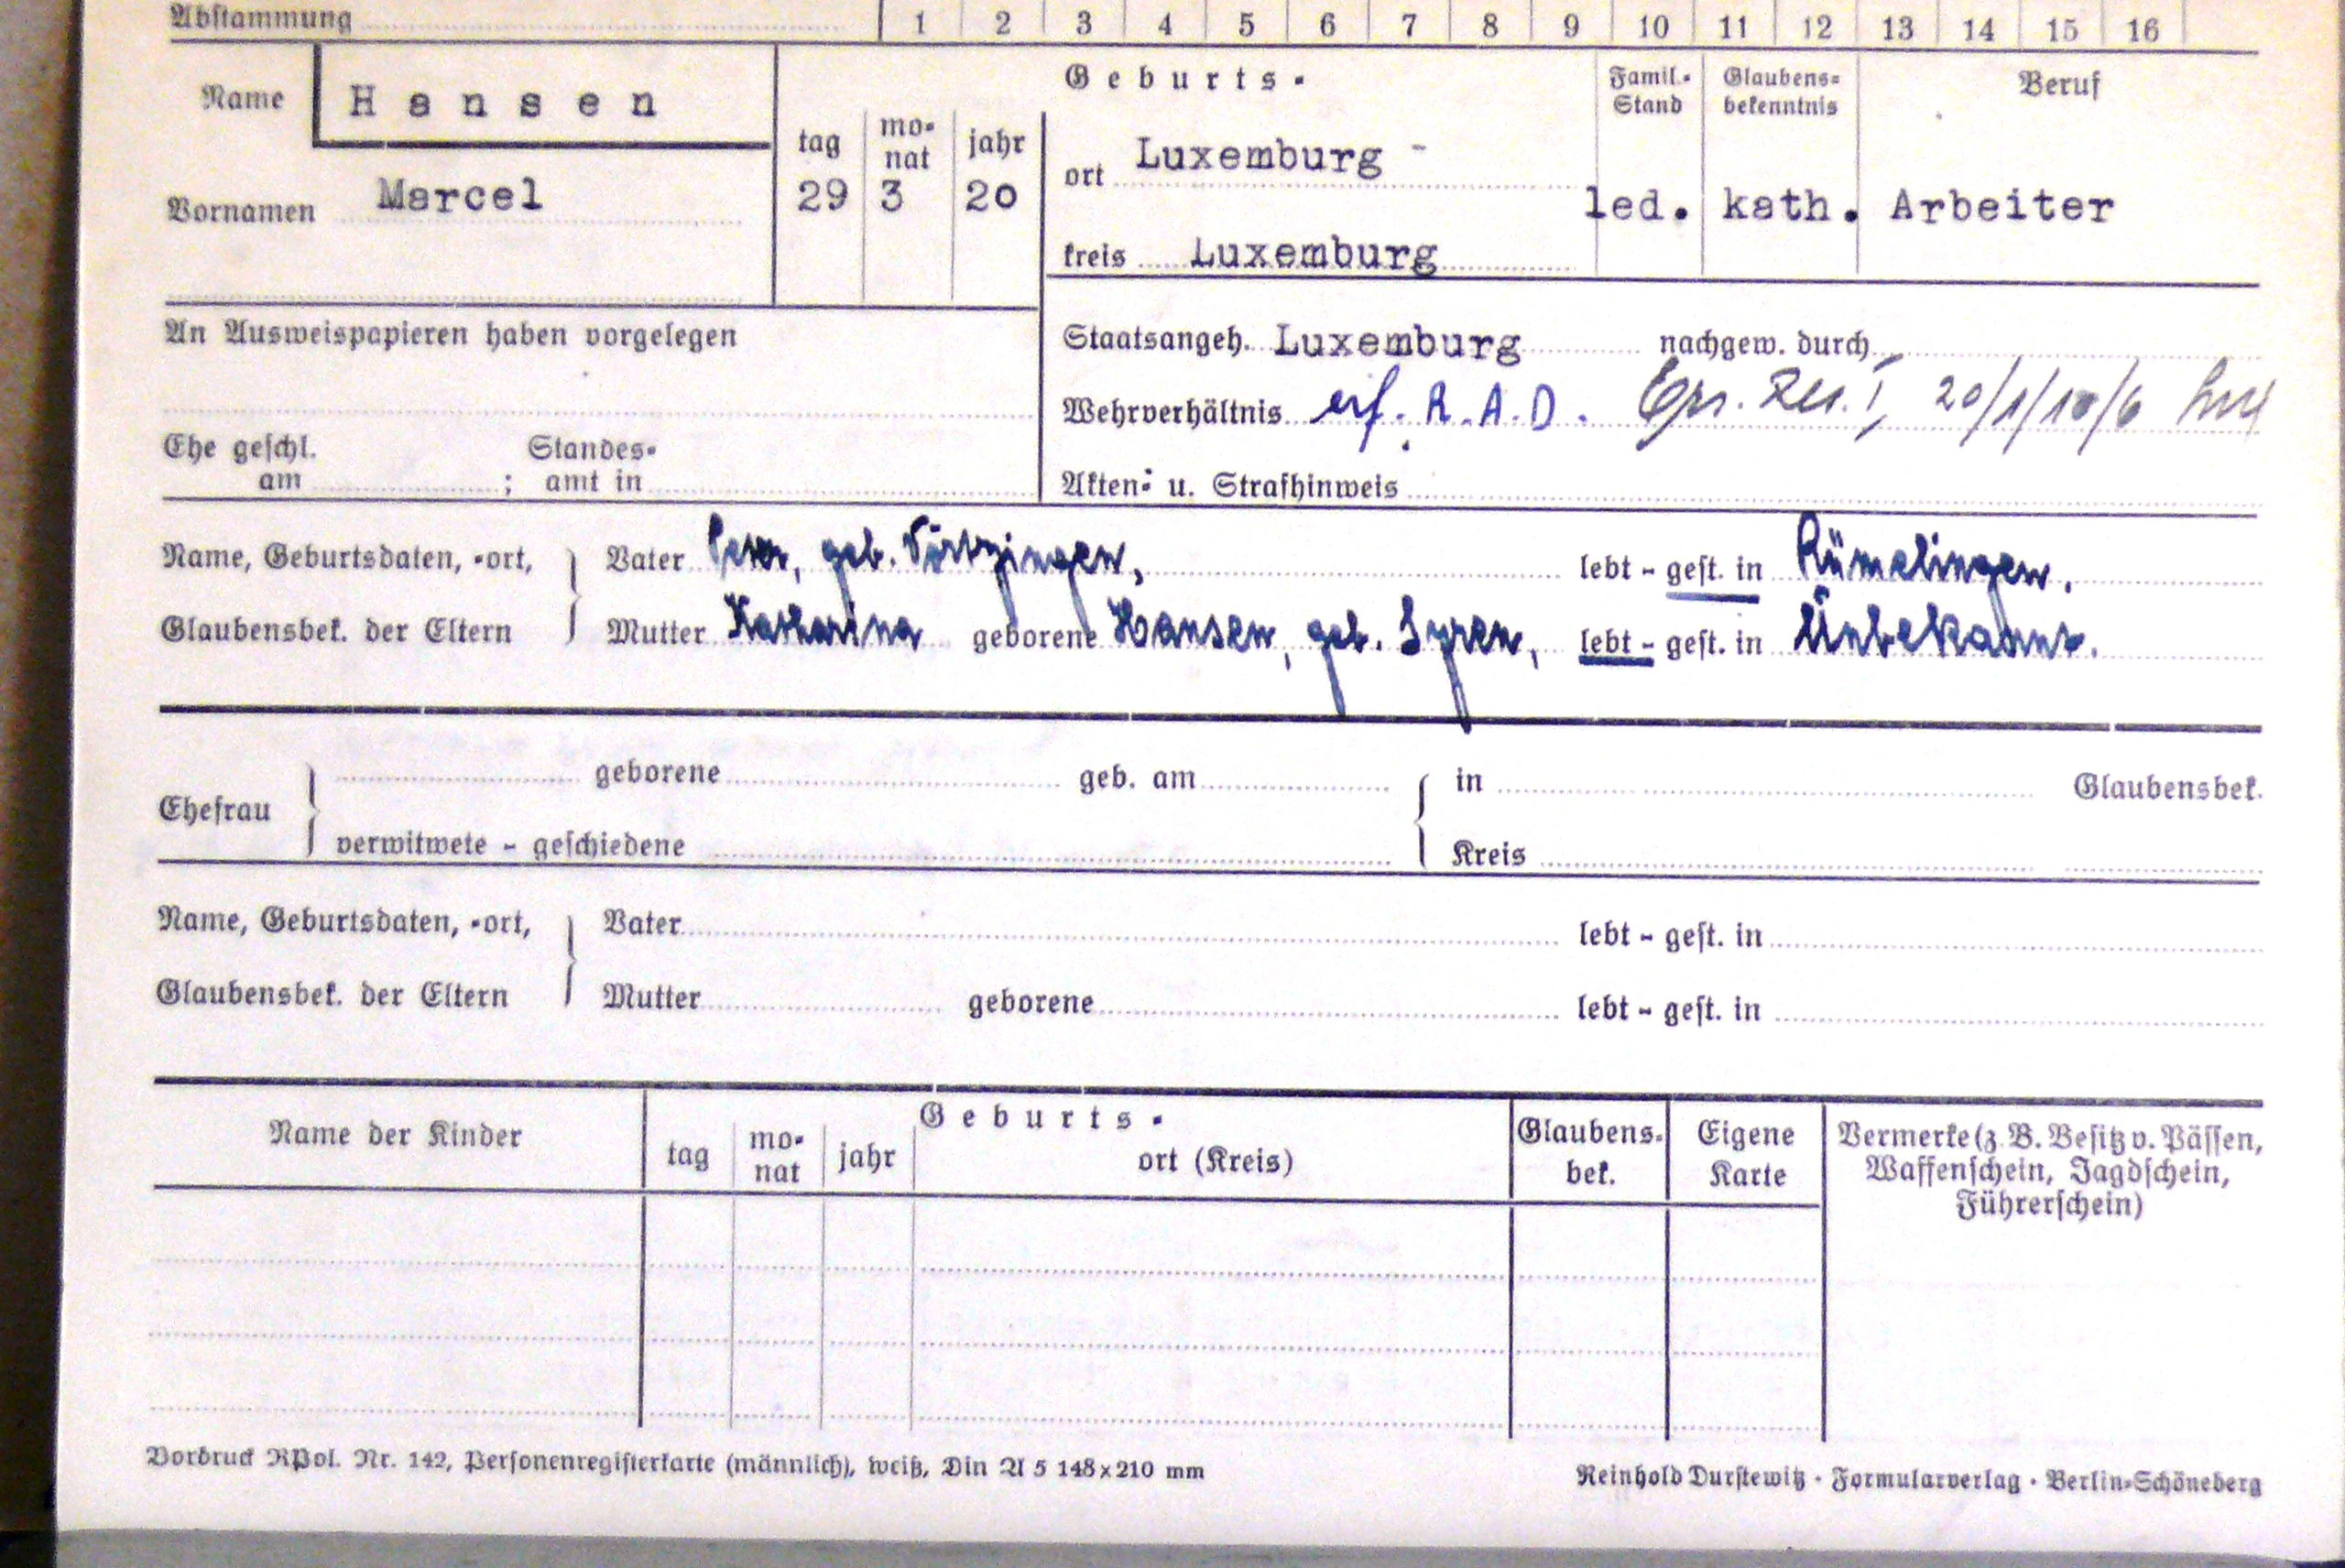 Abstammung 1 2 3 4 5 6 7 8 9 10 11 12 13 14 15 16
Name Hansen
Vornamen Marcel
Geburts-
tag monat jahr
29 3 20
ort Luxemburg -
kreis Luxemburg
Famil.-Stand
led.
Glaubens-bekenntnis
kath.
Beruf
Arbeiter
An Ausweispapieren haben vorgelegen
Staatsangeh. Luxemburg nachgew. durch
Wehrverhältnis erf. R.A.D. Ers. Res. I, 20/1/10/6
Ehe geschl. am ; Standesamt in
Akten- u. Strafhinweis
Name, Geburtsdaten, -ort, Vater Peter, geb. lebt - gest. in Rümelingen.
Glaubensbek. der Eltern Mutter Katharina geborene Hansen, geb. Syren, lebt - gest. in Unbekannt.
Ehefrau geborene geb. am in Glaubensbek.
verwitwete - geschiedene Kreis
Name, Geburtsdaten, -ort, Vater lebt - gest. in
Glaubensbek. der Eltern Mutter geborene lebt - gest. in
Name der Kinder
Geburts-
tag monat jahr ort (Kreis)
Glaubens-bek.
Eigene Karte
Vermerke (z. B. Besitz v. Pässen,
Waffenschein, Jagdschein,
Führerschein)
Vordruck RPol. Nr. 142, Personenregisterkarte (männlich), weiß, Din A 5 148x210 mm
Reinhold Durstewitz · Formularverlag · Berlin-Schöneberg